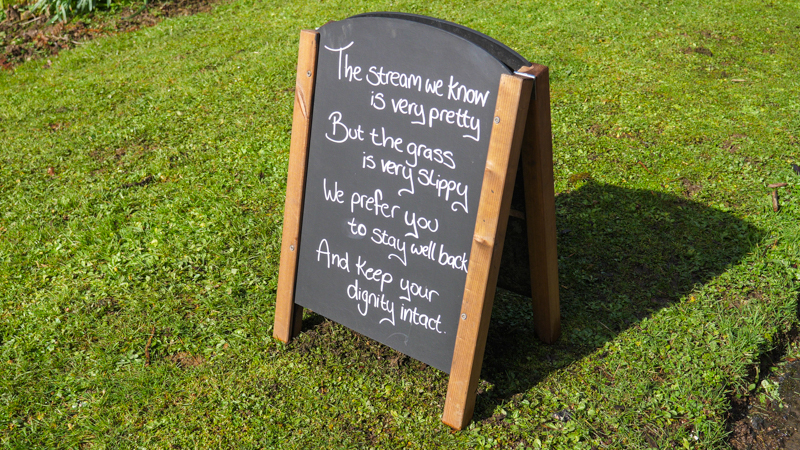 The stream we know
is very pretty
But the grass
is very slippy
We prefer you
to stay well back
And keep your
dignity intact.